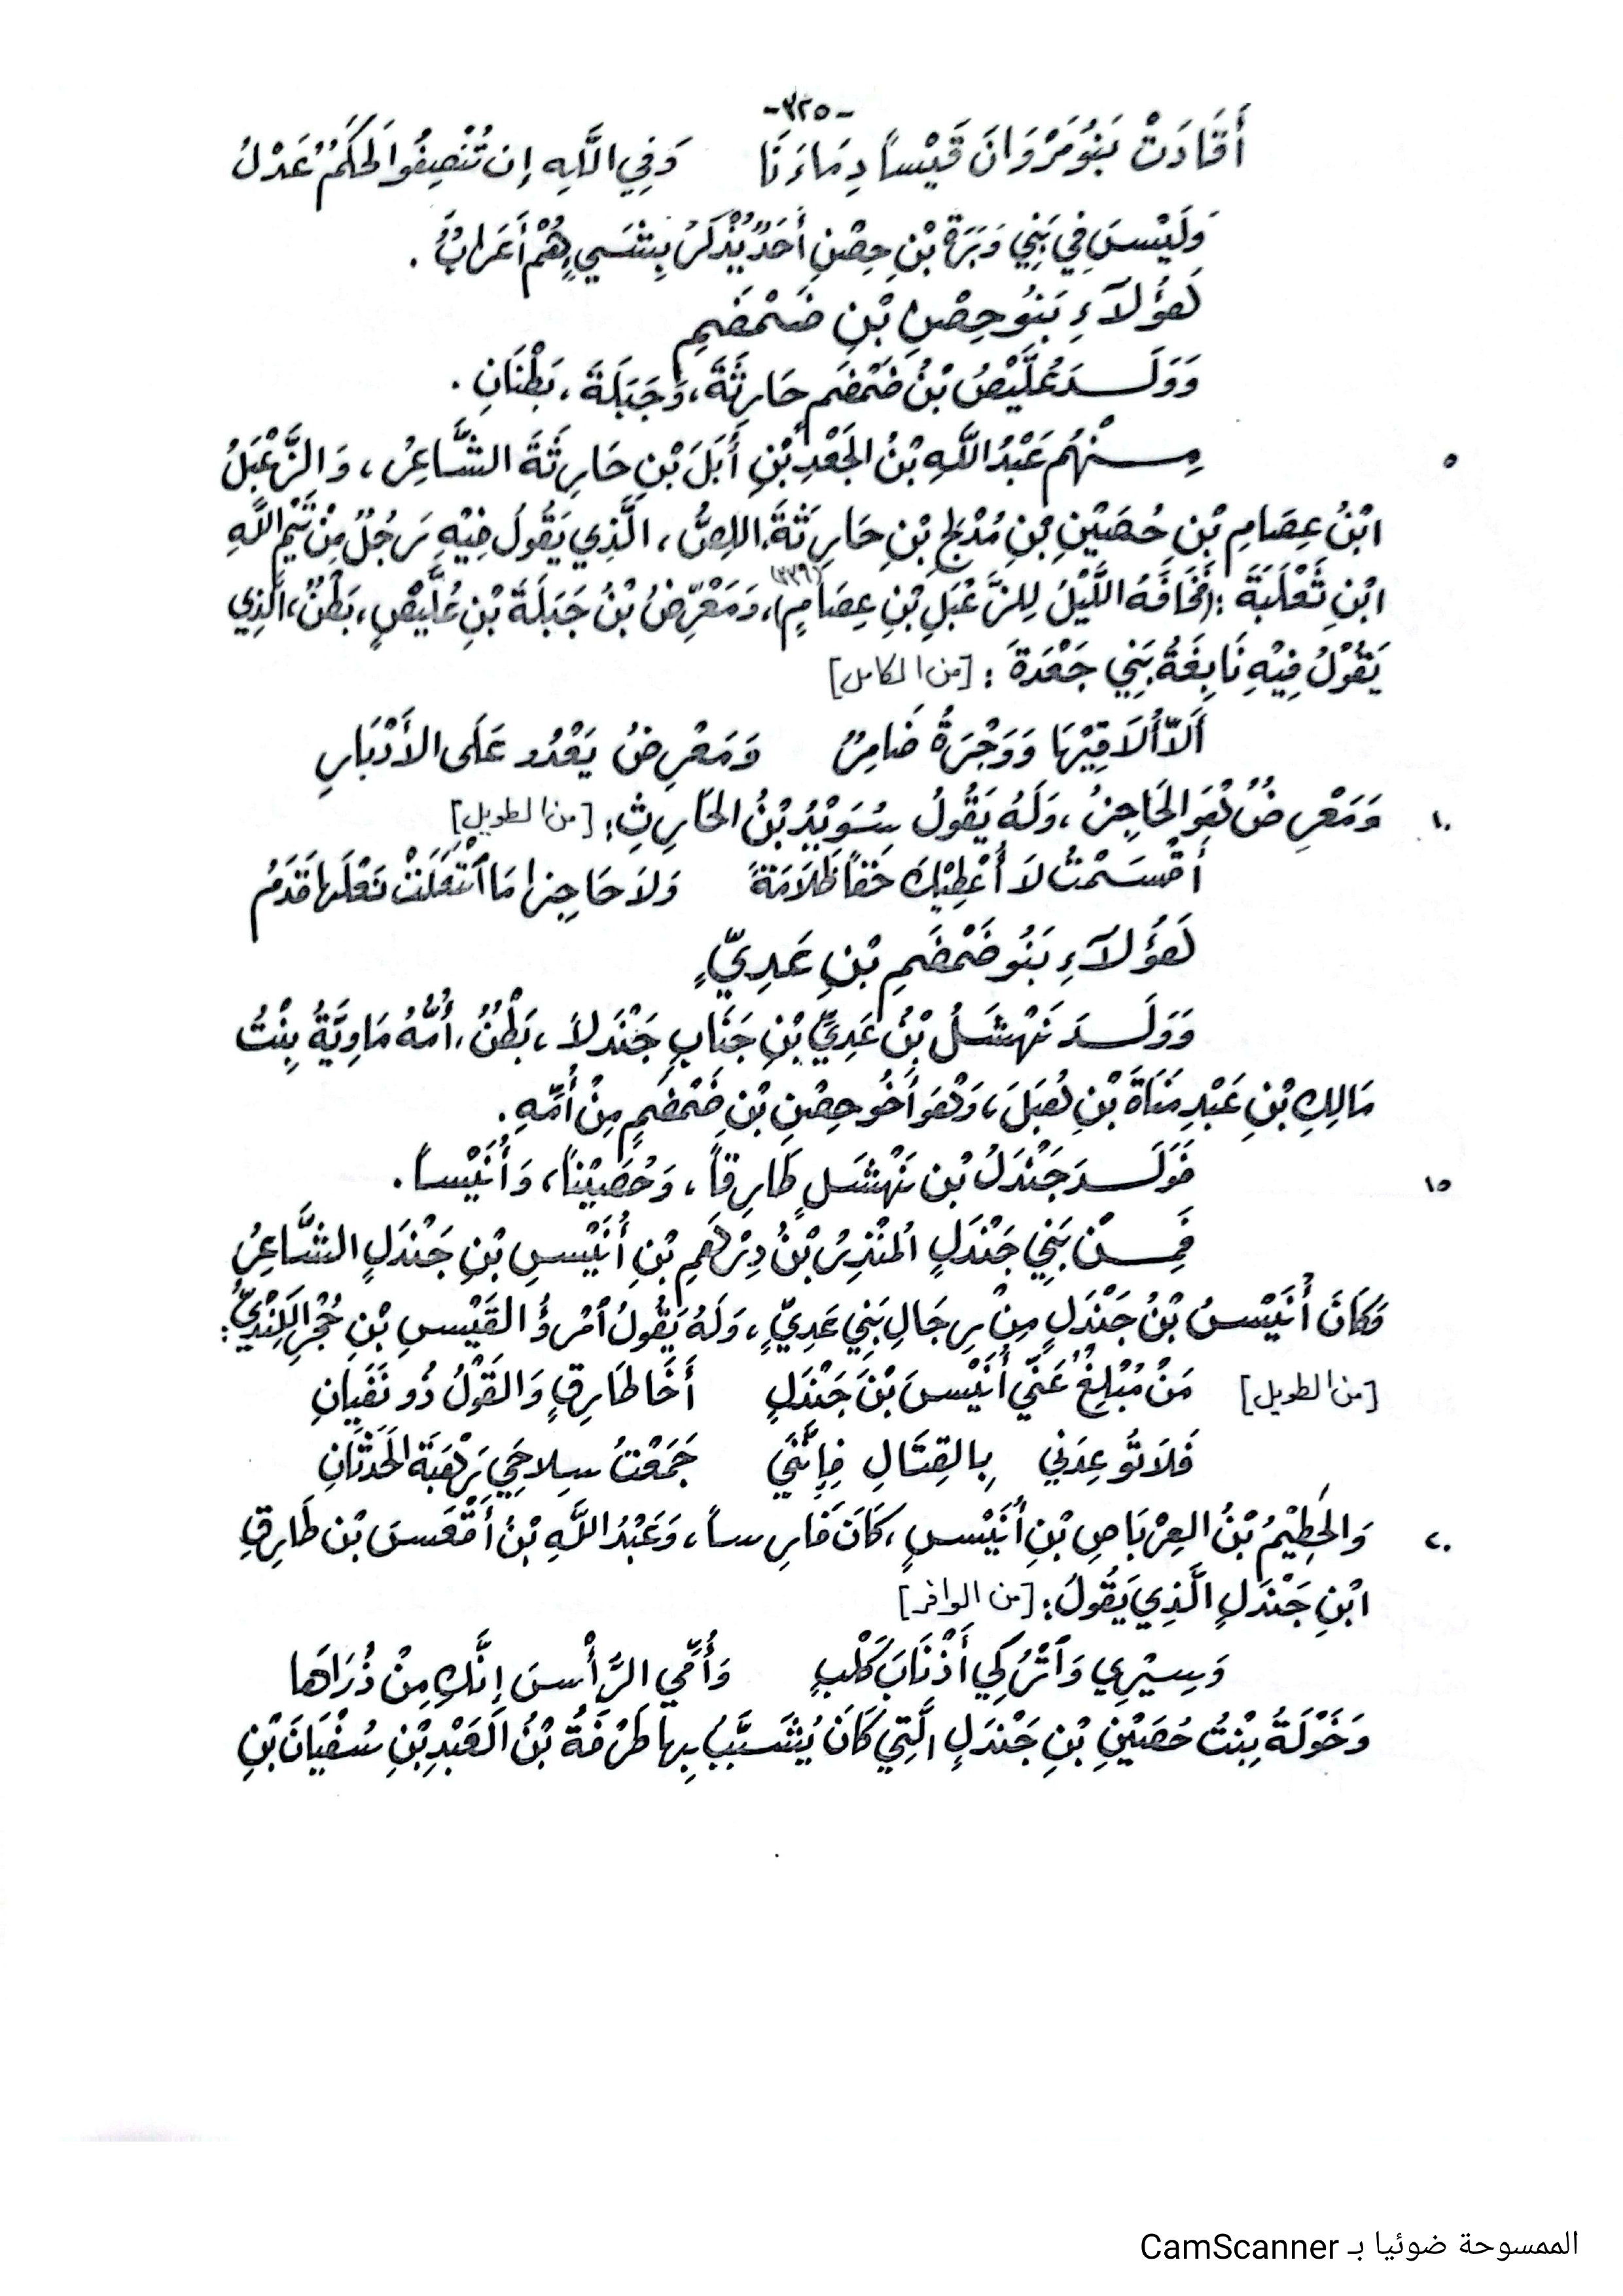 -٣٢٥-
أَقَادَتْ بَنُو مَرْوَانَ قَيْساً دِمَاءَنَا    وَفِي اللَّهِ إِن تُنْصِفُوا لحَكَمٌ عَدْلُ
وَلَيْسَ فِي بَنِي وَبَرَةَ بْنِ حِصْنٍ أَحَدٌ يُذْكَرُ بِشَيءٍ هُمْ أَعَرابٌ .
هَؤُلاَءِ بَنُو حِصْنِ بْنِ ضَمْضَمِ
وَوَلَدَ عُلَيْصُ بْنُ ضَمْضَمٍ حَارِثَةَ، وَجَبَلَةَ، بَطْنَانِ .
٥ مِنْهُم عَبْدُ اللَّهِ بْنُ الجَعْدِ بْنِ أُبَلَ بْنِ حَارِثَةَ الشَّاعِرُ، وَالزَّعْبَلُ
ابْنُ عِصَامِ بْنِ حُصَيْنِ بْنِ مُدْلِجِ بْنِ حَارِثَةَ، اللِصُّ، الَّذِي يَقُولُ فِيْهِ رَجُلٌ مِنْ تَيْمِ اللَّهِ
ابْنِ ثَعْلَبَةَ : (مَخَافَةَ اللَّيْلِ لِلزَّعْبَلِ بْنِ عِصَامٍ)(٣٣٩)، وَمَعْرِضُ بْنُ جَبَلَةَ بْنِ عُلَيْصٍ، بَطْنٌ، الَّذِي
يَقُوْلُ فِيْهِ نَابِغَةُ بَنِي جَعْدَةَ : [من الكامل]
أَلاّ أُلاَقِيْهَا وَوَجْرَةُ ضَامِرٌ    وَمَعْرِضُ يَعْدُو عَلَى الأَدْبَارِ
١٠ وَمَعْرِضٌ هُوَ الحَاجِزُ، وَلَهُ يَقُولُ سُوَيْدُ بْنُ الحَارِثِ: [من الطويل]
أَقْسَمْتُ لاَ أُعْطِيْكَ حَقاً ظُلاَمَةً    وَلاَ حَاجِزا مَا اْنْتَعَلَتْ نَعْلَها قَدَمُ
هَؤُلاَءِ بَنُو ضَمْضَمِ بْنِ عَدِيٍّ
وَوَلَدَ نَهْشَلُ بْنُ عَدِيِّ بْنِ جَنَابٍ جَنْدَلاً، بَطْنٌ، أُمُّهُ مَاوِيَّةُ بِنْتُ
مَالِكِ بْنِ عَبْدِ مَنَاةَ بْنِ هُبَلَ، وَهُوَ أَخُو حِصْنِ بْنِ ضَمْضَمٍ مِنْ أُمِّهِ .
١٥ فَوَلَدَ جَنْدَلُ بْن نَهْشَلٍ طَارِقاً، وَحُصَيْناً، وَأُنَيْساً .
فَمِنْ بَنِي جَنْدَلٍ المُنْذِرُ بْنُ دِرْهَمِ بْنِ أُنَيْسِ بْنِ جَنْدَلٍ الشَّاعِرُ
وَكَانَ أُنَيْسُ بْنُ جَنْدَلٍ مِنْ رِجَالِ بَنِي عَدِيٍّ، وَلَهُ يَقُولُ اْمْرؤُ القَيْسِ بْنِ حُجْرٍ الكِنْدِيُّ:
[من الطويل] مَنْ مُبْلِغٌ عَنِّي أُنَيْسَ بْنَ جَنْدَلٍ    أَخَا طَارِقٍ وَالقَوْلُ ذُو نَفَيَانِ
فَلاَ تُوعِدَنِي بِالقِتَالِ فَإِنَّنِي    جَمَعْتُ سِلاحِي رَهْبَةَ الحَدَثَانِ
٢٠ وَالحَطِيْمُ بْنُ العِرْبَاصِ بْنِ أُنَيْسٍ، كَانَ فَارِساً، وَعَبْدُ اللَّهِ بْنُ أَقْعَسَ بْن طَارِقِ
ابْنِ جَنْدَلٍ الَّذِي يَقُولُ: [من الوافر]
وَسِيْرِي وَاْتْرُكِي أَذْنَابَ كَلْبٍ    وَأُمِّي الرَّأْسَ إِنَّكِ مِنْ ذُرَاهَا
وَخَوْلَةُ بِنْتُ حُصَيْنِ بْنِ جَنْدَلٍ الَّتِي كَانَ يُشَبِّبُ بِها طَرَفَةُ بْنُ العَبْدِ بْنِ سُفْيَانَ بْنِ
الممسوحة ضوئيا بـ CamScanner